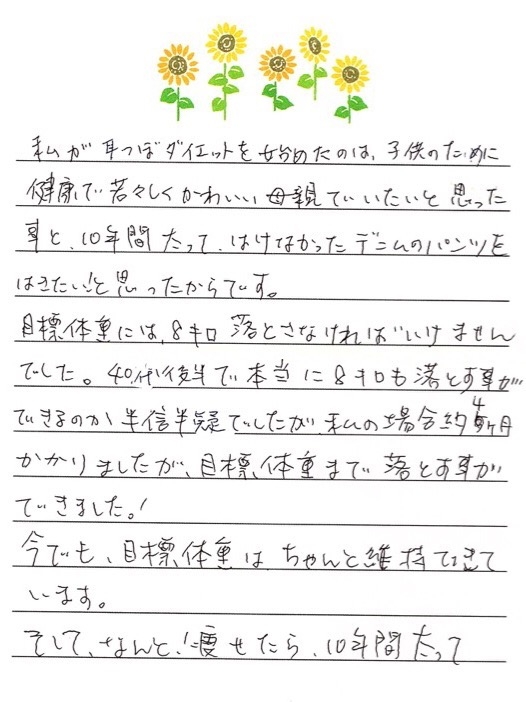 私が耳つぼダイエットを始めたのは、子供のために
健康で若々しくかわいい母親でいたいと思った
事と、10年間太って、はけなかったデニムのパンツを
はきたい!と思ったからです。
目標体重には、8キロ落とさなければいけません
でした。40代後半で本当に8キロも落とす事が
できるのか半信半疑でしたが、私の場合約4ヶ月
かかりましたが、目標体重まで落とす事が
できました。!
今でも、目標体重はちゃんと維持できて
います。
そして、なんと!痩せたら、10年間太って